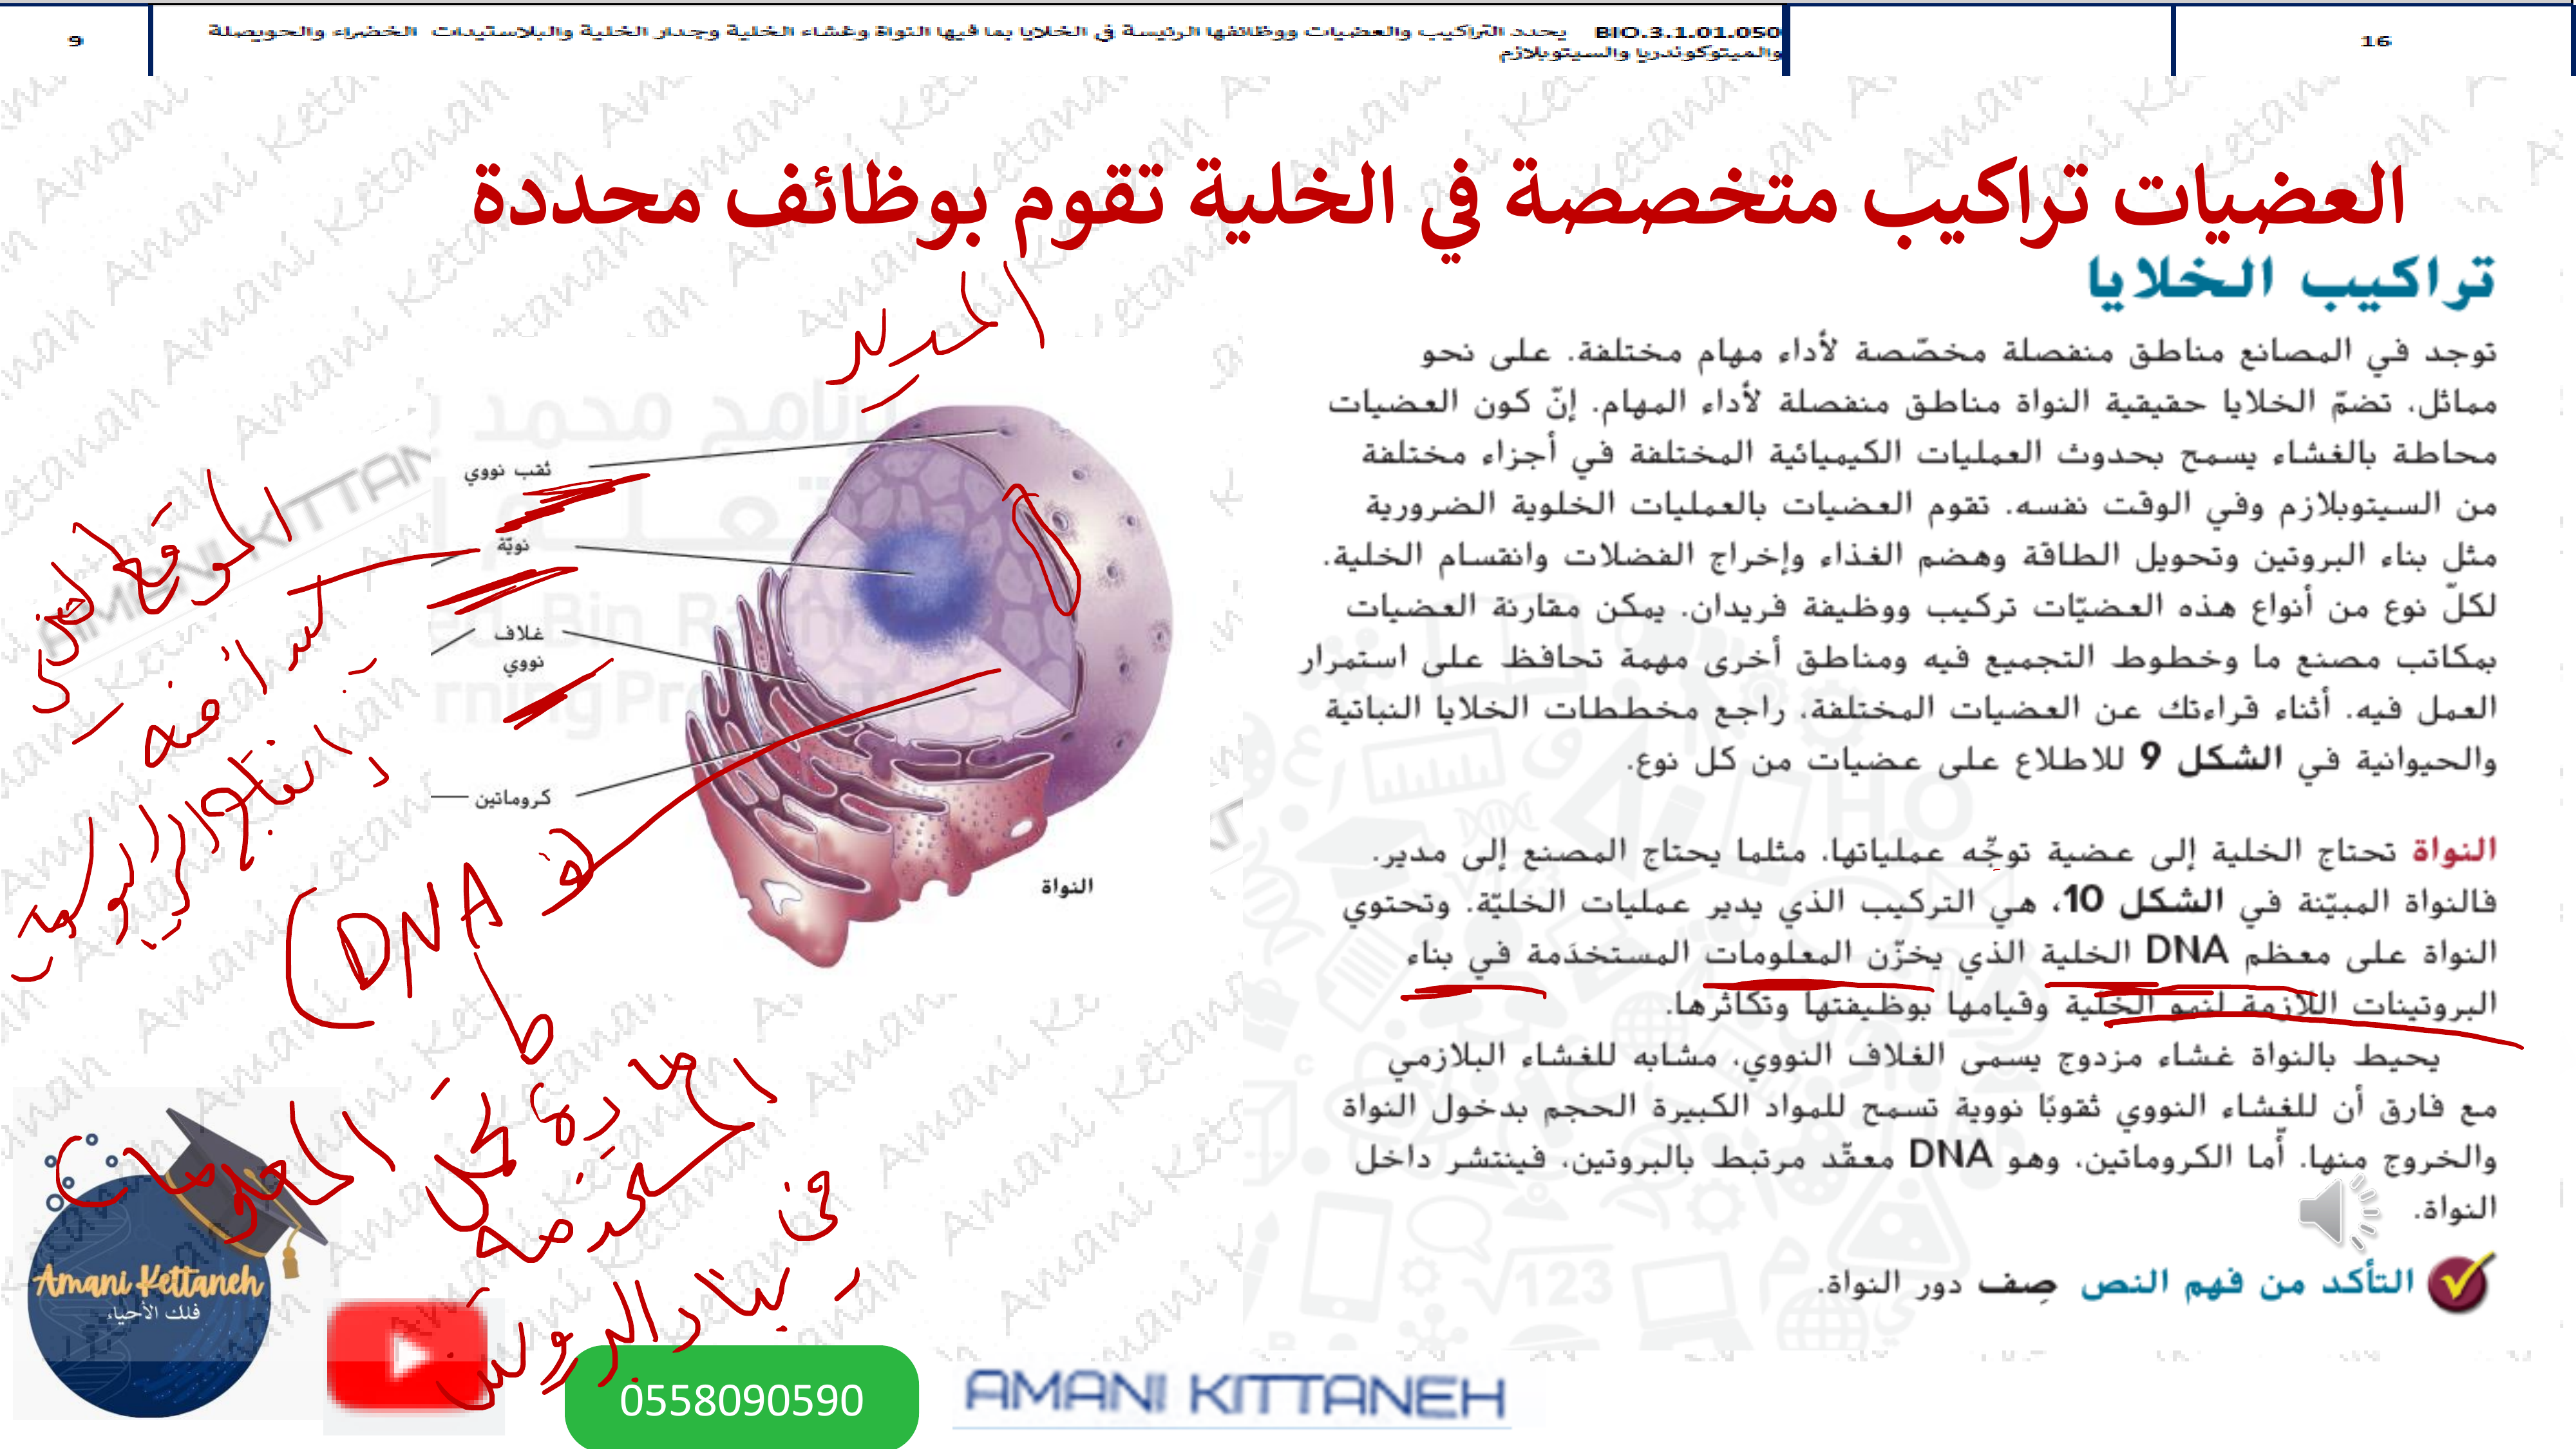 16
BIO.3.1.01.050 يحدد التراكيب والعضيات ووظائفها الرئيسة في الخلايا بما فيها النواة وغشاء الخلية وجدار الخلية والبلاستيدات الخضراء والحويصلة
والميتوكوندريا والسيتوبلازم
9
العضيات تراكيب متخصصة في الخلية تقوم بوظائف محددة
تراكيب الخلايا
توجد في المصانع مناطق منفصلة مخصّصة لأداء مهام مختلفة. على نحو
مماثل، تضمّ الخلايا حقيقية النواة مناطق منفصلة لأداء المهام. إنّ كون العضيات
محاطة بالغشاء يسمح بحدوث العمليات الكيميائية المختلفة في أجزاء مختلفة
من السيتوبلازم وفي الوقت نفسه. تقوم العضيات بالعمليات الخلوية الضرورية
مثل بناء البروتين وتحويل الطاقة وهضم الغذاء وإخراج الفضلات وانقسام الخلية.
لكلّ نوع من أنواع هذه العضيّات تركيب ووظيفة فريدان. يمكن مقارنة العضيات
بمكاتب مصنع ما وخطوط التجميع فيه ومناطق أخرى مهمة تحافظ على استمرار
العمل فيه. أثناء قراءتك عن العضيات المختلفة، راجع مخططات الخلايا النباتية
والحيوانية في الشكل 9 للاطلاع على عضيات من كل نوع.
النواة تحتاج الخلية إلى عضية توجِّه عملياتها، مثلما يحتاج المصنع إلى مدير.
فالنواة المبيّنة في الشكل 10، هي التركيب الذي يدير عمليات الخليّة. وتحتوي
النواة على معظم DNA الخلية الذي يخزّن المعلومات المستخدَمة في بناء
البروتينات اللازمة لنمو الخلية وقيامها بوظيفتها وتكاثرها.
يحيط بالنواة غشاء مزدوج يسمى الغلاف النووي، مشابه للغشاء البلازمي
مع فارق أن للغشاء النووي ثقوبًا نووية تسمح للمواد الكبيرة الحجم بدخول النواة
والخروج منها. أما الكروماتين، وهو DNA معقّد مرتبط بالبروتين، فينتشر داخل
النواة.
التأكد من فهم النص صِف دور النواة.
المدير
ثقب نووي
نويّة
غلاف
نووي
كروماتين
النواة
DNA
المستخدمة
في
بناء البروتين
Amani Kettaneh
فلك الأحياء
0558090590
AMANI KITTANEH